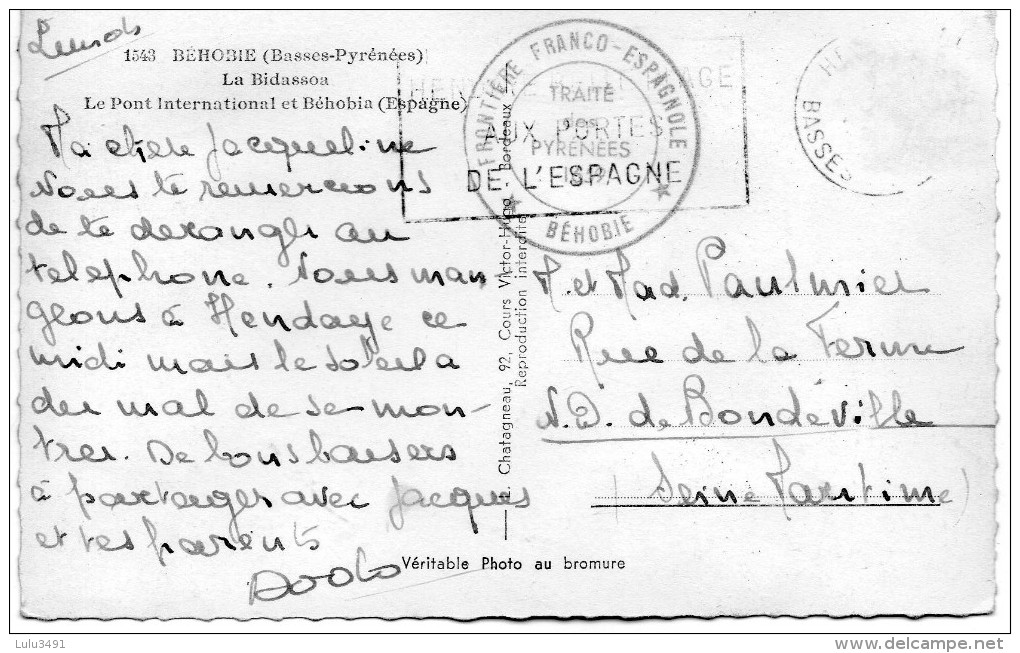 Lundi
1543 BÉHOBIE (Basses-Pyrénées)
La Bidassoa
Le Pont International et Béhobia (Espagne)
Ma chere Jacqueline
Nous te remercions
de te deranger au
telephone. Nous man
geons à Hendaye ce
midi mais le soleil a
du mal de se mon-
trer. De bons baisers
à partager avec Jacques
et tes parents
Dodo
FRONTIÈRE FRANCO-ESPAGNOLE
TRAITÉ
des
PYRÉNÉES
BÉHOBIE
AUX PORTES
DE L'ESPAGNE
BASSES
Chatagneau, 92, Cours Victor-Hugo - Bordeaux
Reproduction interdite
M. et Mad. Paulmier
Rue de la Ferme
N.D. de Bondeville
(Seine Maritime)
Véritable Photo au bromure
Lulu3491
www.delcampe.net